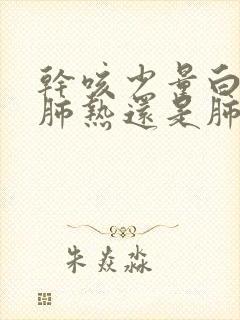 幹咳少量白
肺熱還是肺
朱焱淼